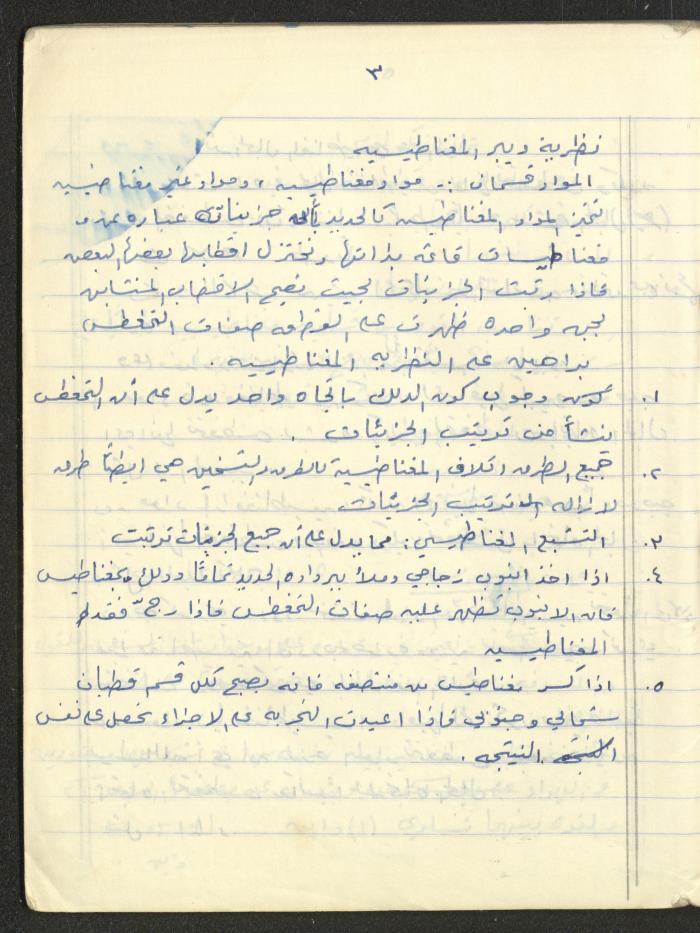 ٣
نظرية ويبر المغناطيسيه
المواد قسمان :- مواد مغناطيسيه ، ومواد غير مغناطيسيه
تتميز المواد المغناطيسيه كالحديد بأن جزيئاتها عباره عن
مغناطيسات قائمه بذاتها وتختزل اقطابها بعضها البعض
فاذا رتبت الجزيئات بحيث تصبح الاقطاب المتشابهه
بجهه واحده ظهرت على القطعه صفات التمغطس
براهين على النظريه المغناطيسيه .
١. كون وجوب كون الدلك باتجاه واحد يدل على أن التمغطس
ينشأ من ترتيب الجزيئات .
٢. جميع الطرق اتلاف المغناطيسية كالطرق والتسخين هي ايضاً طرق
لازاله الترتيب الجزيئات
٣. التشبع المغناطيسي : مما يدل على أن جميع الجزيئات ترتبت
٤. اذا اخذ انبوب زجاجي وملأ ببرادة الحديد تماماً ودلك بمغناطيس
فان الانبوب تظهر عليه صفات التمغطس فاذا رجّ فقد
المغناطيسيه
٥. اذا كسر مغناطيس من منتصفه فانه يصبح لكل قسم قطبان
شمالي وجنوبي فاذا اعيدت التجربه على الاجزاء نحصل على نفس
النتيجه .